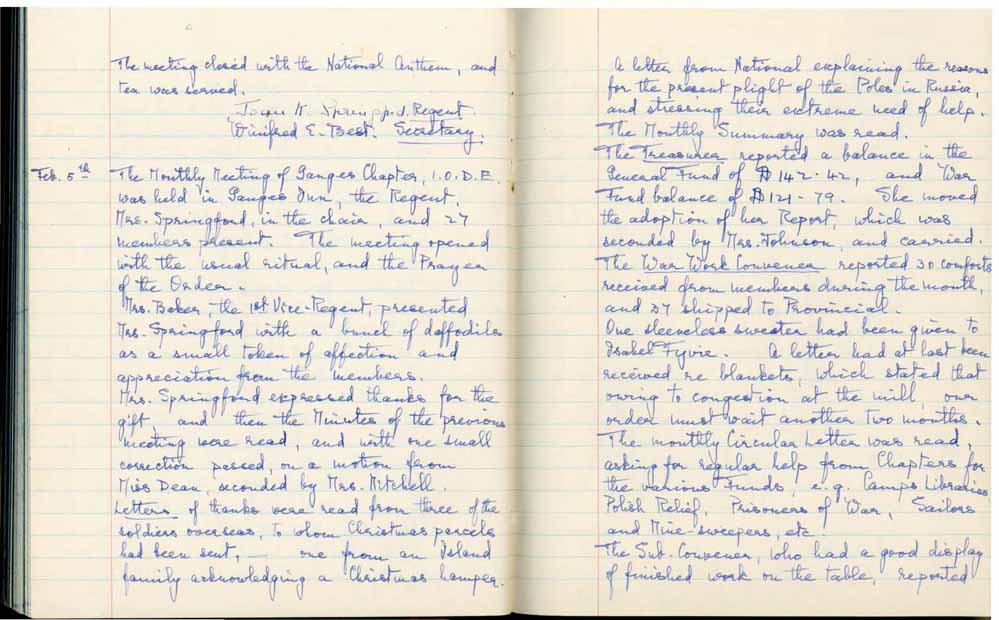 The meeting closed with the National Anthem, and
tea was served.
Regent.
Winifred E. Best. Secretary.
Feb. 5th
The Monthly Meeting of Ganges Chapter, I.O.D.E.
was held in Ganges Inn, the Regent,
Mrs. Springford, in the chair, and 27
members present. The meeting opened
with the usual ritual, and the Prayer
of the Order.
Mrs. Baker, the 1st Vice-Regent, presented
Mrs. Springford with a bunch of daffodils
as a small token of affection and
appreciation from the members.
Mrs. Springford expressed thanks for the
gift, and then the Minutes of the previous
meeting were read, and with one small
correction passed, on a motion from
Miss Dean, seconded by Mrs. Mitchell.
Letters of thanks were read from three of the
soldiers overseas, to whom Christmas parcels
had been sent, — one from an Island
family acknowledging a Christmas hamper.
A letter from National explaining the reasons
for the present plight of the Poles in Russia,
and stressing their extreme need of help.
The Monthly Summary was read.
The Treasurer reported a balance in the
General Fund of $142.42, and War
Fund balance of $121-79. She moved
the adoption of her Report, which was
seconded by Mrs. Johnson, and carried.
The War Work Convener reported 30 comforts
received from members during the month,
and 37 shipped to Provincial.
One sleeveless sweater had been given to
Isabel Fyvie. A letter had at last been
received re blankets, which stated that
owing to congestion at the mill, our
order must wait another two months.
The monthly Circular Letter was read,
asking for regular help from Chapters for
the various Funds, e.g. Camps Libraries
Polish Relief, Prisoners of War, Sailors
and Mine-sweepers, etc.
The Sub. Convener, who had a good display
of finished work on the table, reported